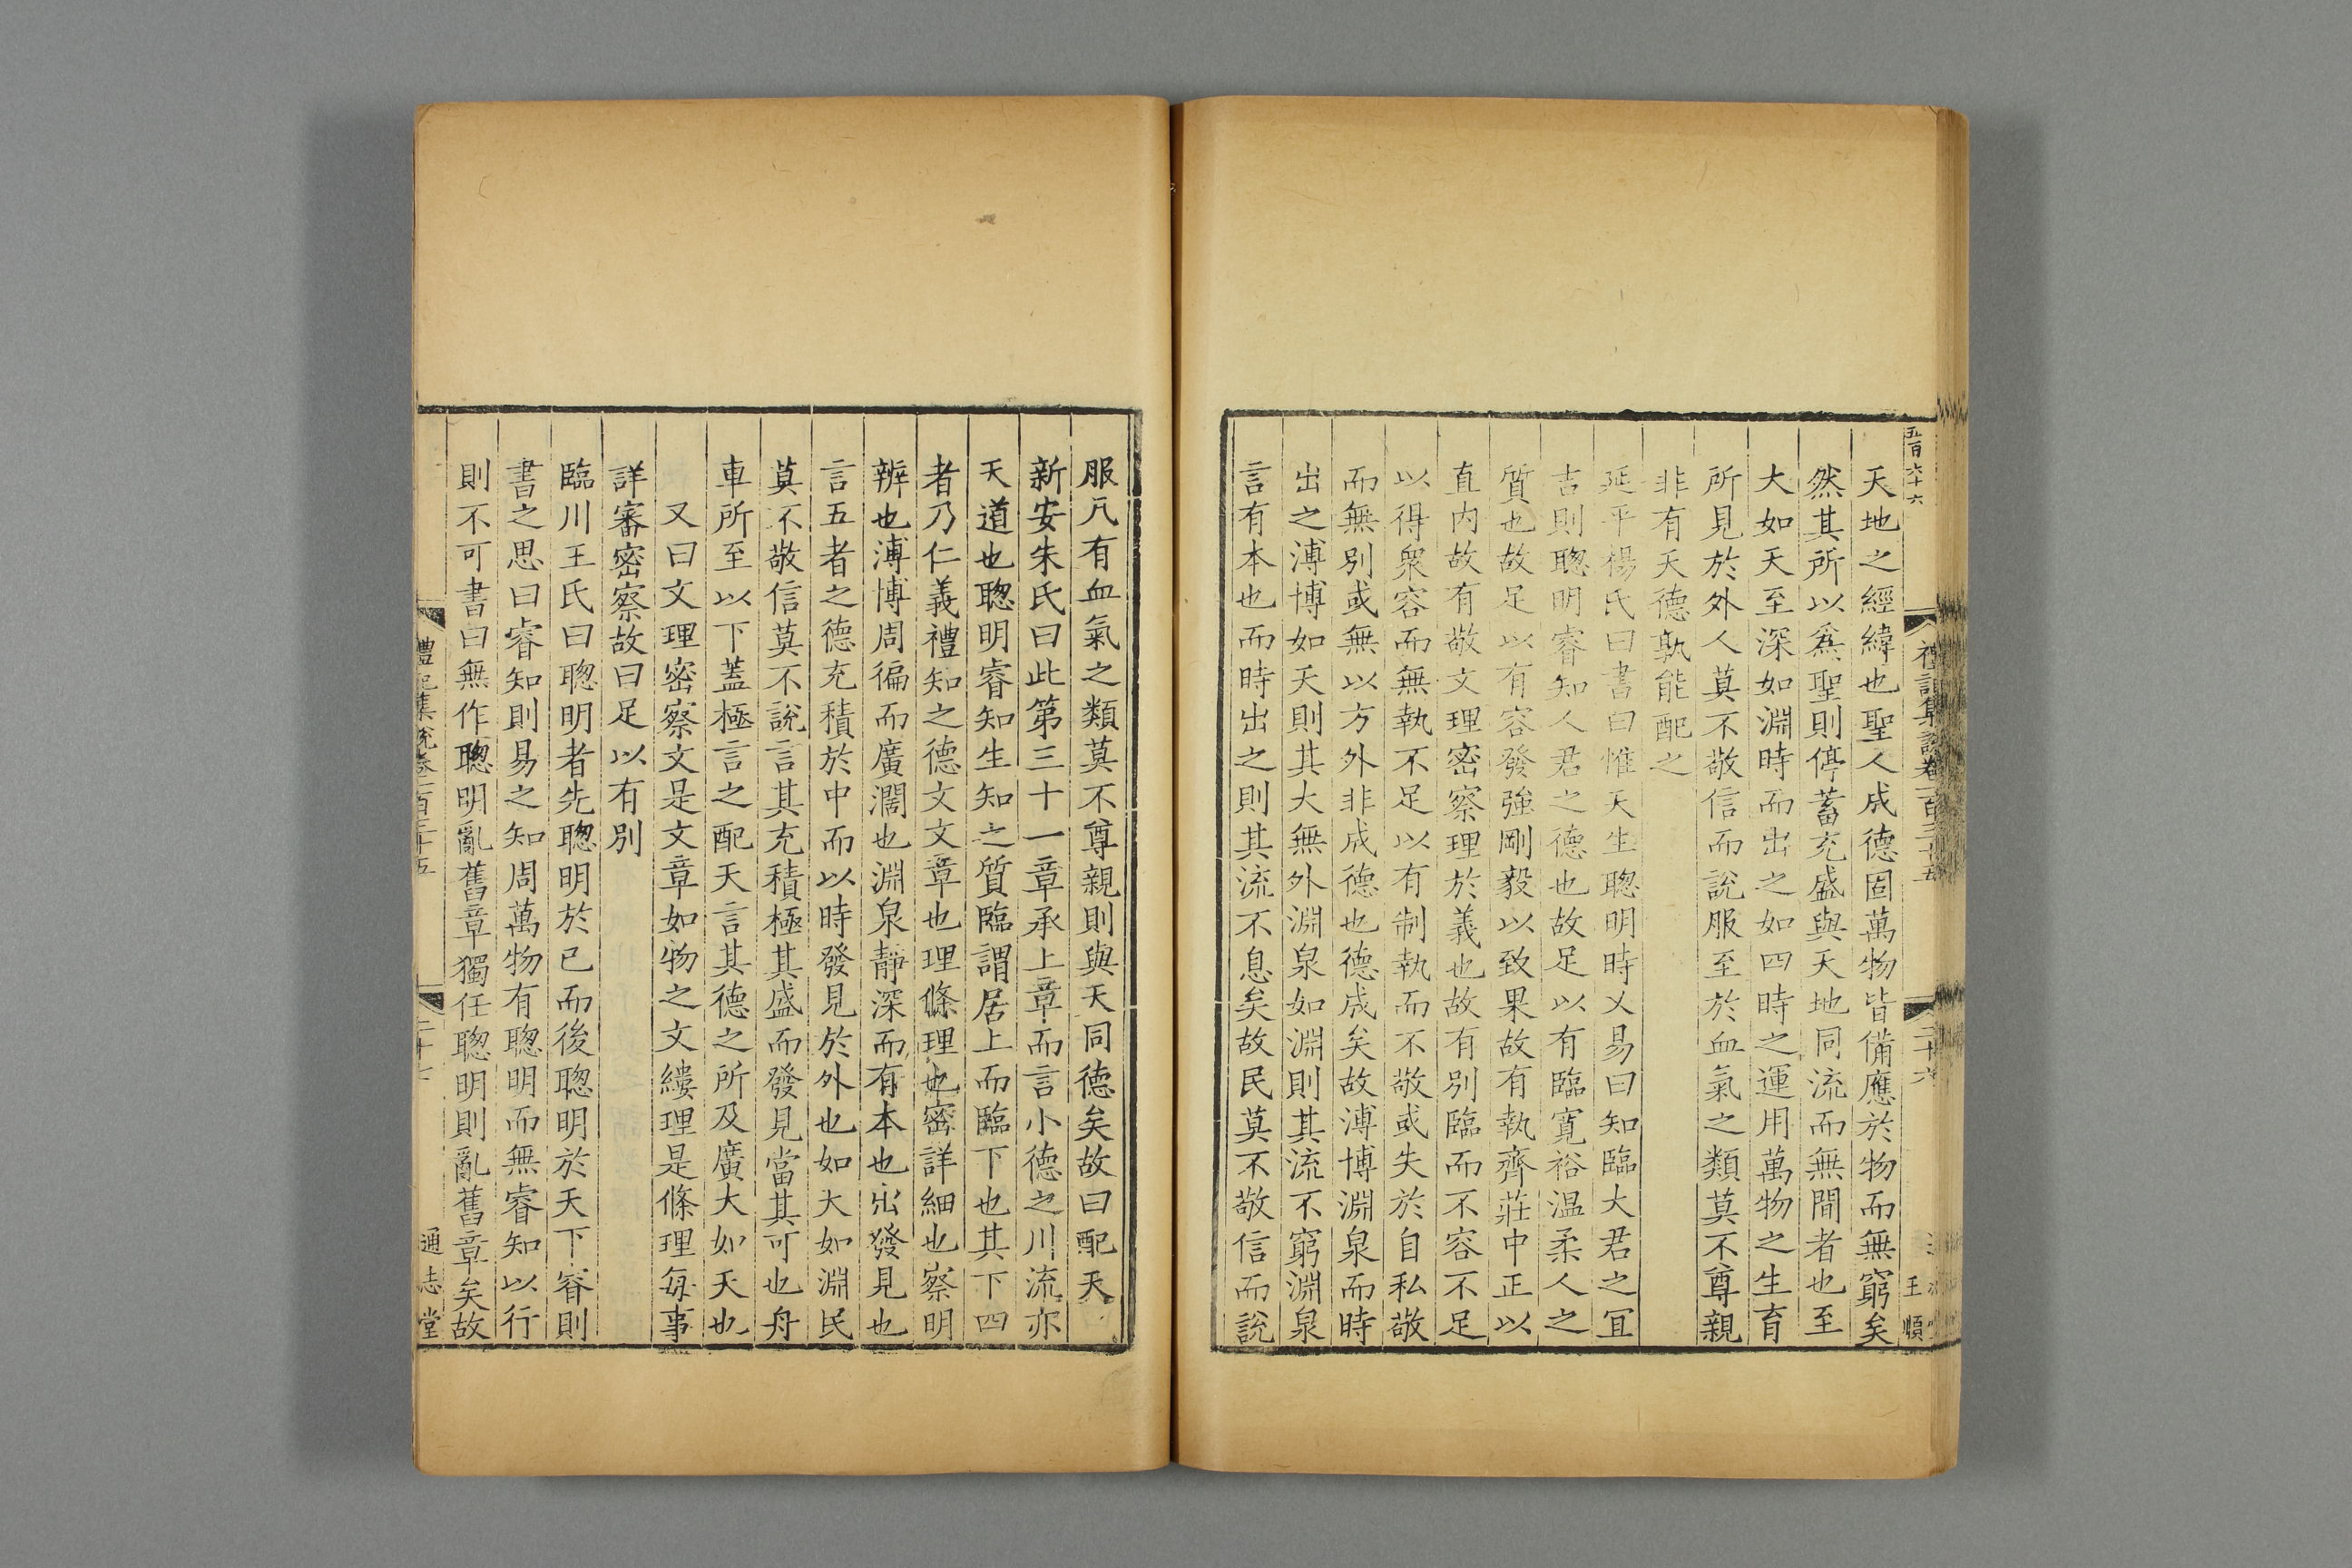 五百六十六
禮記集說卷一百三十五
二十六
王順
天地之經緯也聖人成德固萬物皆備應於物而無窮矣
然其所以爲聖則停蓄充盛與天地同流而無間者也至
大如天至深如淵時而出之如四時之運用萬物之生育
所見於外人莫不敬信而說服至於血氣之類莫不尊親
非有天德孰能配之
延平楊氏曰書曰惟天生聰明時乂易曰知臨大君之冝
吉則聰明睿知人君之德也故足以有臨寬裕溫柔人之
質也故足以有容發強剛毅以致果故有執齊莊中正以
直内故有敬文理密察理於義也故有別臨而不容不足
以得衆容而無執不足以有制執而不敬或失於自私敬
而無別或無以方外非成德也德成矣故溥博淵泉而時
出之溥博如天則其大無外淵泉如淵則其流不窮淵泉
言有本也而時出之則其流不息矣故民莫不敬信而說
服凡有血氣之類莫不尊親則與天同德矣故曰配天
新安朱氏曰此第三十一章承上章而言小德之川流亦
天道也聰明睿知生知之質臨謂居上而臨下也其下四
者乃仁義禮知之德文文章也理條理也密詳細也察明
辨也溥博周徧而廣濶也淵泉靜深而有本也出發見也
言五者之德充積於中而以時發見於外也如大如淵民
莫不敬信莫不說言其充積極其盛而發見當其可也舟
車所至以下蓋極言之配天言其德之所及廣大如天也
又曰文理密察文是文章如物之文縷理是條理每事
詳審密察故曰足以有別
臨川王氏曰聰明者先聰明於已而後聰明於天下睿則
書之思曰睿知則易之知周萬物有聰明而無睿知以行
則不可書曰無作聰明亂舊章獨任聰明則亂舊章矣故
禮記集說卷一百三十五
二十七
通志堂